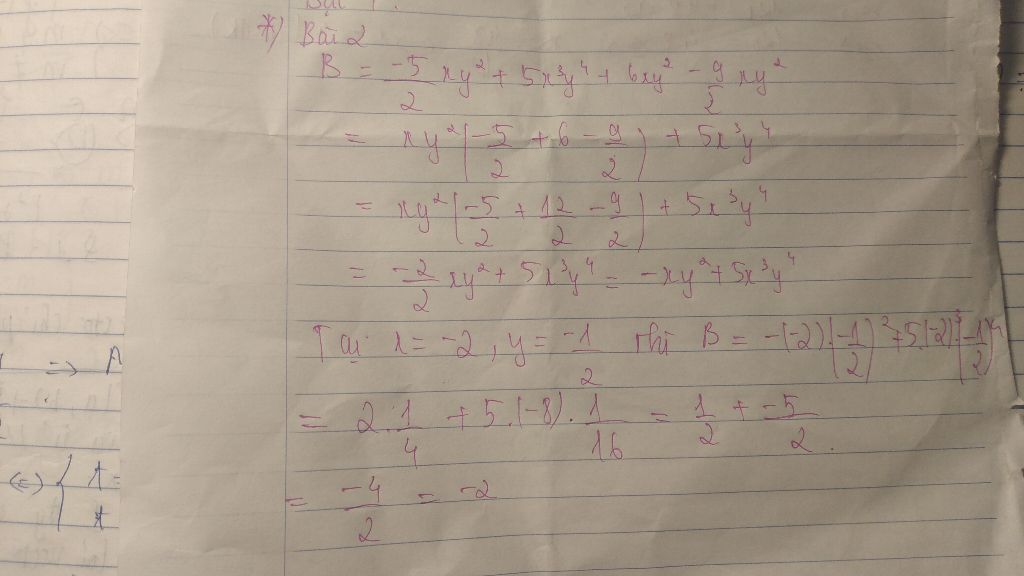 *) Bài 2
B = -5/2 xy² + 5x³y⁴ + 6xy² - 9/2 xy²
= xy² (-5/2 + 6 - 9/2) + 5x³y⁴
= xy² (-5/2 + 12/2 - 9/2) + 5x³y⁴
= -2/2 xy² + 5x³y⁴ = -xy² + 5x³y⁴
Tại x = -2, y = -1/2 thì B = -(-2).(-1/2)² + 5.(-2)³.(-1/2)⁴
= 2.1/4 + 5.(-8).1/16 = 1/2 + -5/2.
= -4/2 = -2
=>
(=>) {